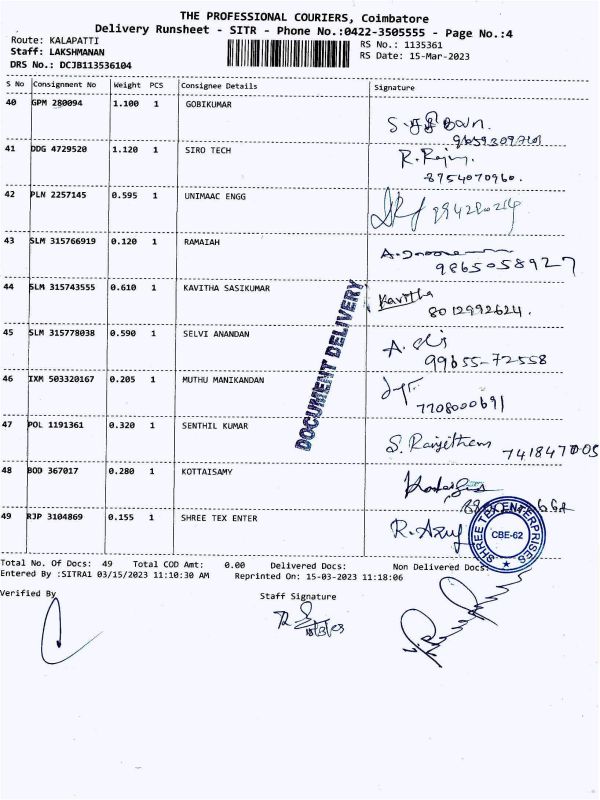 THE PROFESSIONAL COURIERS, Coimbatore
Delivery Runsheet - SITR - Phone No.:0422-3505555 - Page No.:4
Route: KALAPATTI
RS No.: 1135361
Staff: LAKSHMANAN
RS Date: 15-Mar-2023
DRS No.: DCJB113536104
S No Consignment No Weight PCS Consignee Details Signature
40 GPM 280094 1.100 1 GOBIKUMAR
41 DDG 4729520 1.120 1 SIRO TECH
8754070960.
42 PLN 2257145 0.595 1 UNIMAAC ENGG
43 SLM 315766919 0.120 1 RAMAIAH
9865058927
44 SLM 315743555 0.610 1 KAVITHA SASIKUMAR Kavitha
8012992624.
DOCUMENT DELIVERY
45 SLM 315778038 0.590 1 SELVI ANANDAN
99655-72558
46 IXM 503320167 0.205 1 MUTHU MANIKANDAN
7708000691
47 POL 1191361 0.320 1 SENTHIL KUMAR
48 BOD 367017 0.280 1 KOTTAISAMY
49 RJP 3104869 0.155 1 SHREE TEX ENTER
SHREE TEX ENTERPRISES
CBE-62
Total No. Of Docs: 49 Total COD Amt: 0.00 Delivered Docs: Non Delivered Docs:
Entered By :SITRA1 03/15/2023 11:10:30 AM Reprinted On: 15-03-2023 11:18:06
Verified By Staff Signature